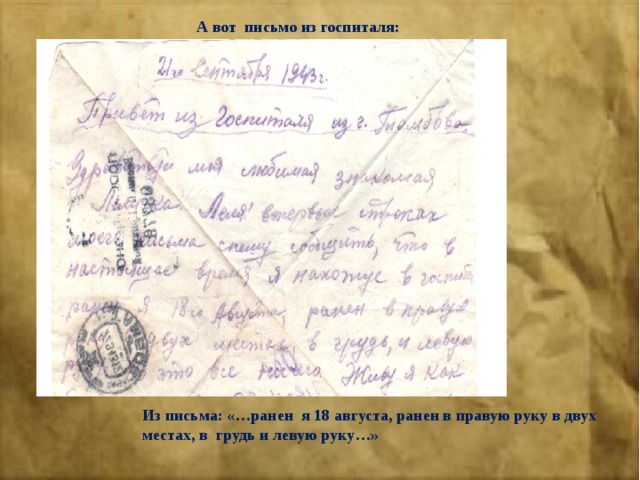 А вот письмо из госпиталя:
21го Сентября 1943г.
Привет из Госпиталя из г. Тамбова.
Здравствуй моя любимая знакомая
Леля! вопервых строках
моего письма спешу сообщить, что в
настоящее время я нахожус в госпит
ранен я 18го Августа, ранен в правую
двух местах, в грудь, и левую
это все ничего Живу я как
Из письма: «…ранен я 18 августа, ранен в правую руку в двух
местах, в грудь и левую руку…»